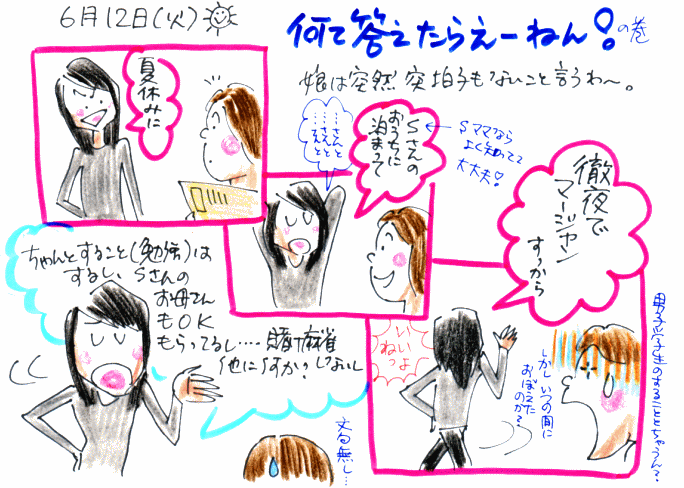 6月12日(火)
何て答えたらえーねん!の巻
娘は突然 突拍子もないこと言うわ〜。
夏休みに
Sさんの
おうちに
泊まって
Sママなら
よく知ってて
大丈夫!
徹夜で
マージャン
すっから
いいっよ
ねっ
しかしいつの間に
おぼえた
のか?
男子学生のすることとちゃうん?
ちゃんとすること(勉強)は
するし、Sさんの
お母さん
もOK
もらってるし‥‥賭け麻雀
他に何すか?しないし
丈る無し…